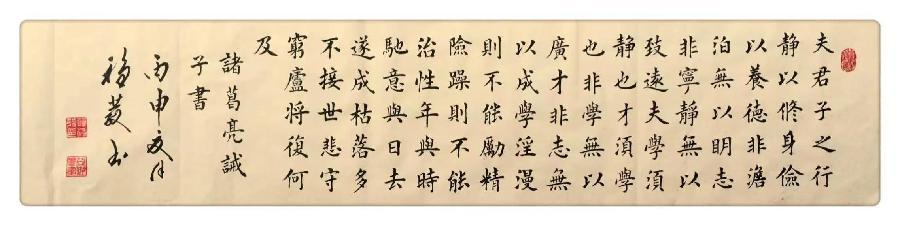 夫君子之行
静以修身儉
以養德非澹
泊無以明志
非寧靜無以
致遠夫學須
静也才須學
也非學無以
廣才非志無
以成學淫漫
則不能勵精
險躁則不能
治性年與時
馳意與日去
遂成枯落多
不接世悲守
窮廬將復何
及
諸葛亮誡
子書
丙申夏月
书